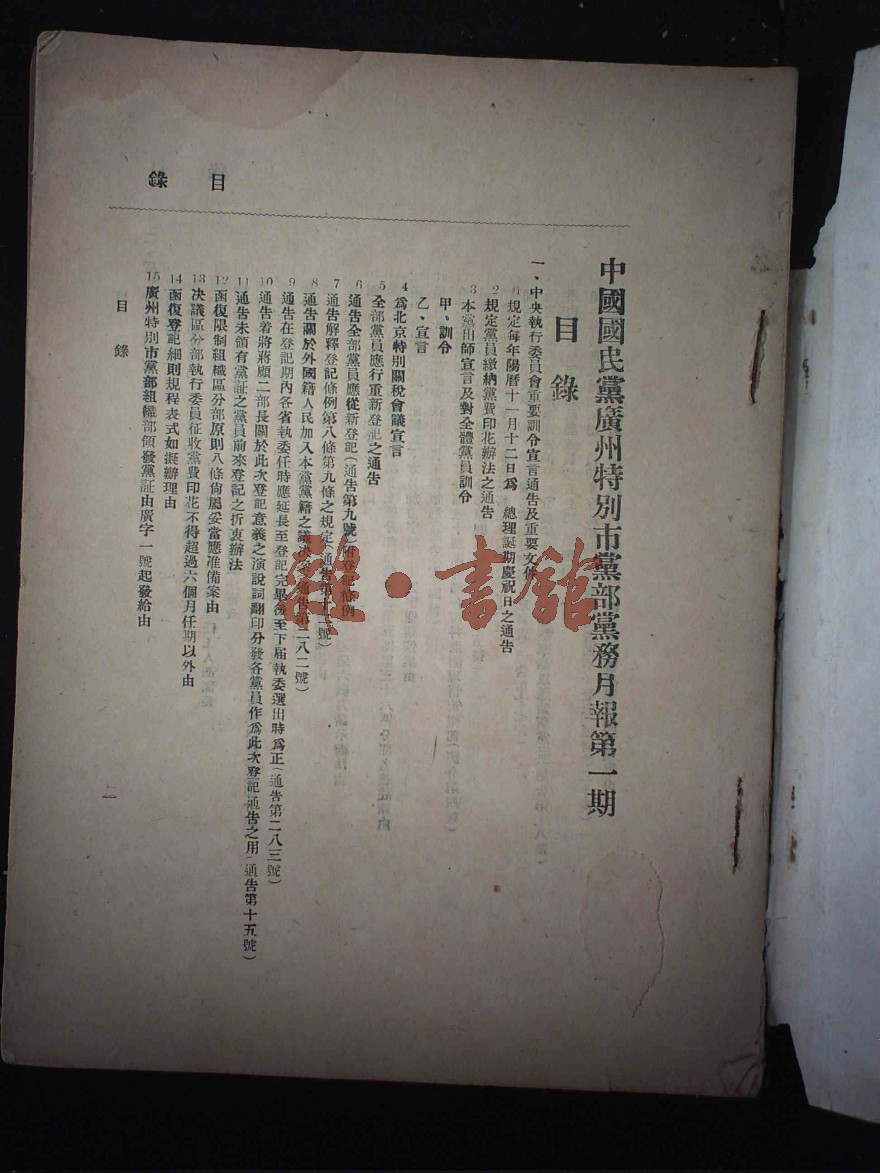 目錄
中國國民黨廣州特別市黨部黨務月報第一期
目錄
一、中央執行委員會重要訓令宣言通告及重要文件
1 規定每年陽曆十一月十二日爲 總理誕期慶祝日之通告
2 規定黨員繳納黨費印花辦法之通告
3 本黨出師宣言及對全體黨員訓令
甲、訓令
乙、宣言
4 爲北京特別關稅會議宣言
5 全部黨員應行重新登記之通告
6 通告全部黨員應從新登記(通告第九號)附登記條例
7 通告解釋登記條例第八條第九條之規定(通告第十二號)
8 通告關於外國籍人民加入本黨黨籍之議決案(通告第二八二號)
9 通告在登記期內各省執委任時應延長至登記完畢後至下届執委選出時爲正(通告第二八三號)
10 通告着將蔣顧二部長關於此次登記意義之演說詞翻印分發各黨員作爲此次登記通告之用(通告第十五號)
11 通告未領有黨証之黨員前來登記之折衷辦法
12 函復限制組織區分部原則八條尙屬妥當應准備案由
13 決議區分部執行委員征收黨費印花不得超過六個月任期以外由
14 函復登記細則規程表式如擬辦理由
15 廣州特別市黨部組織部領發黨証由廣字一號起發給由
目錄
書館